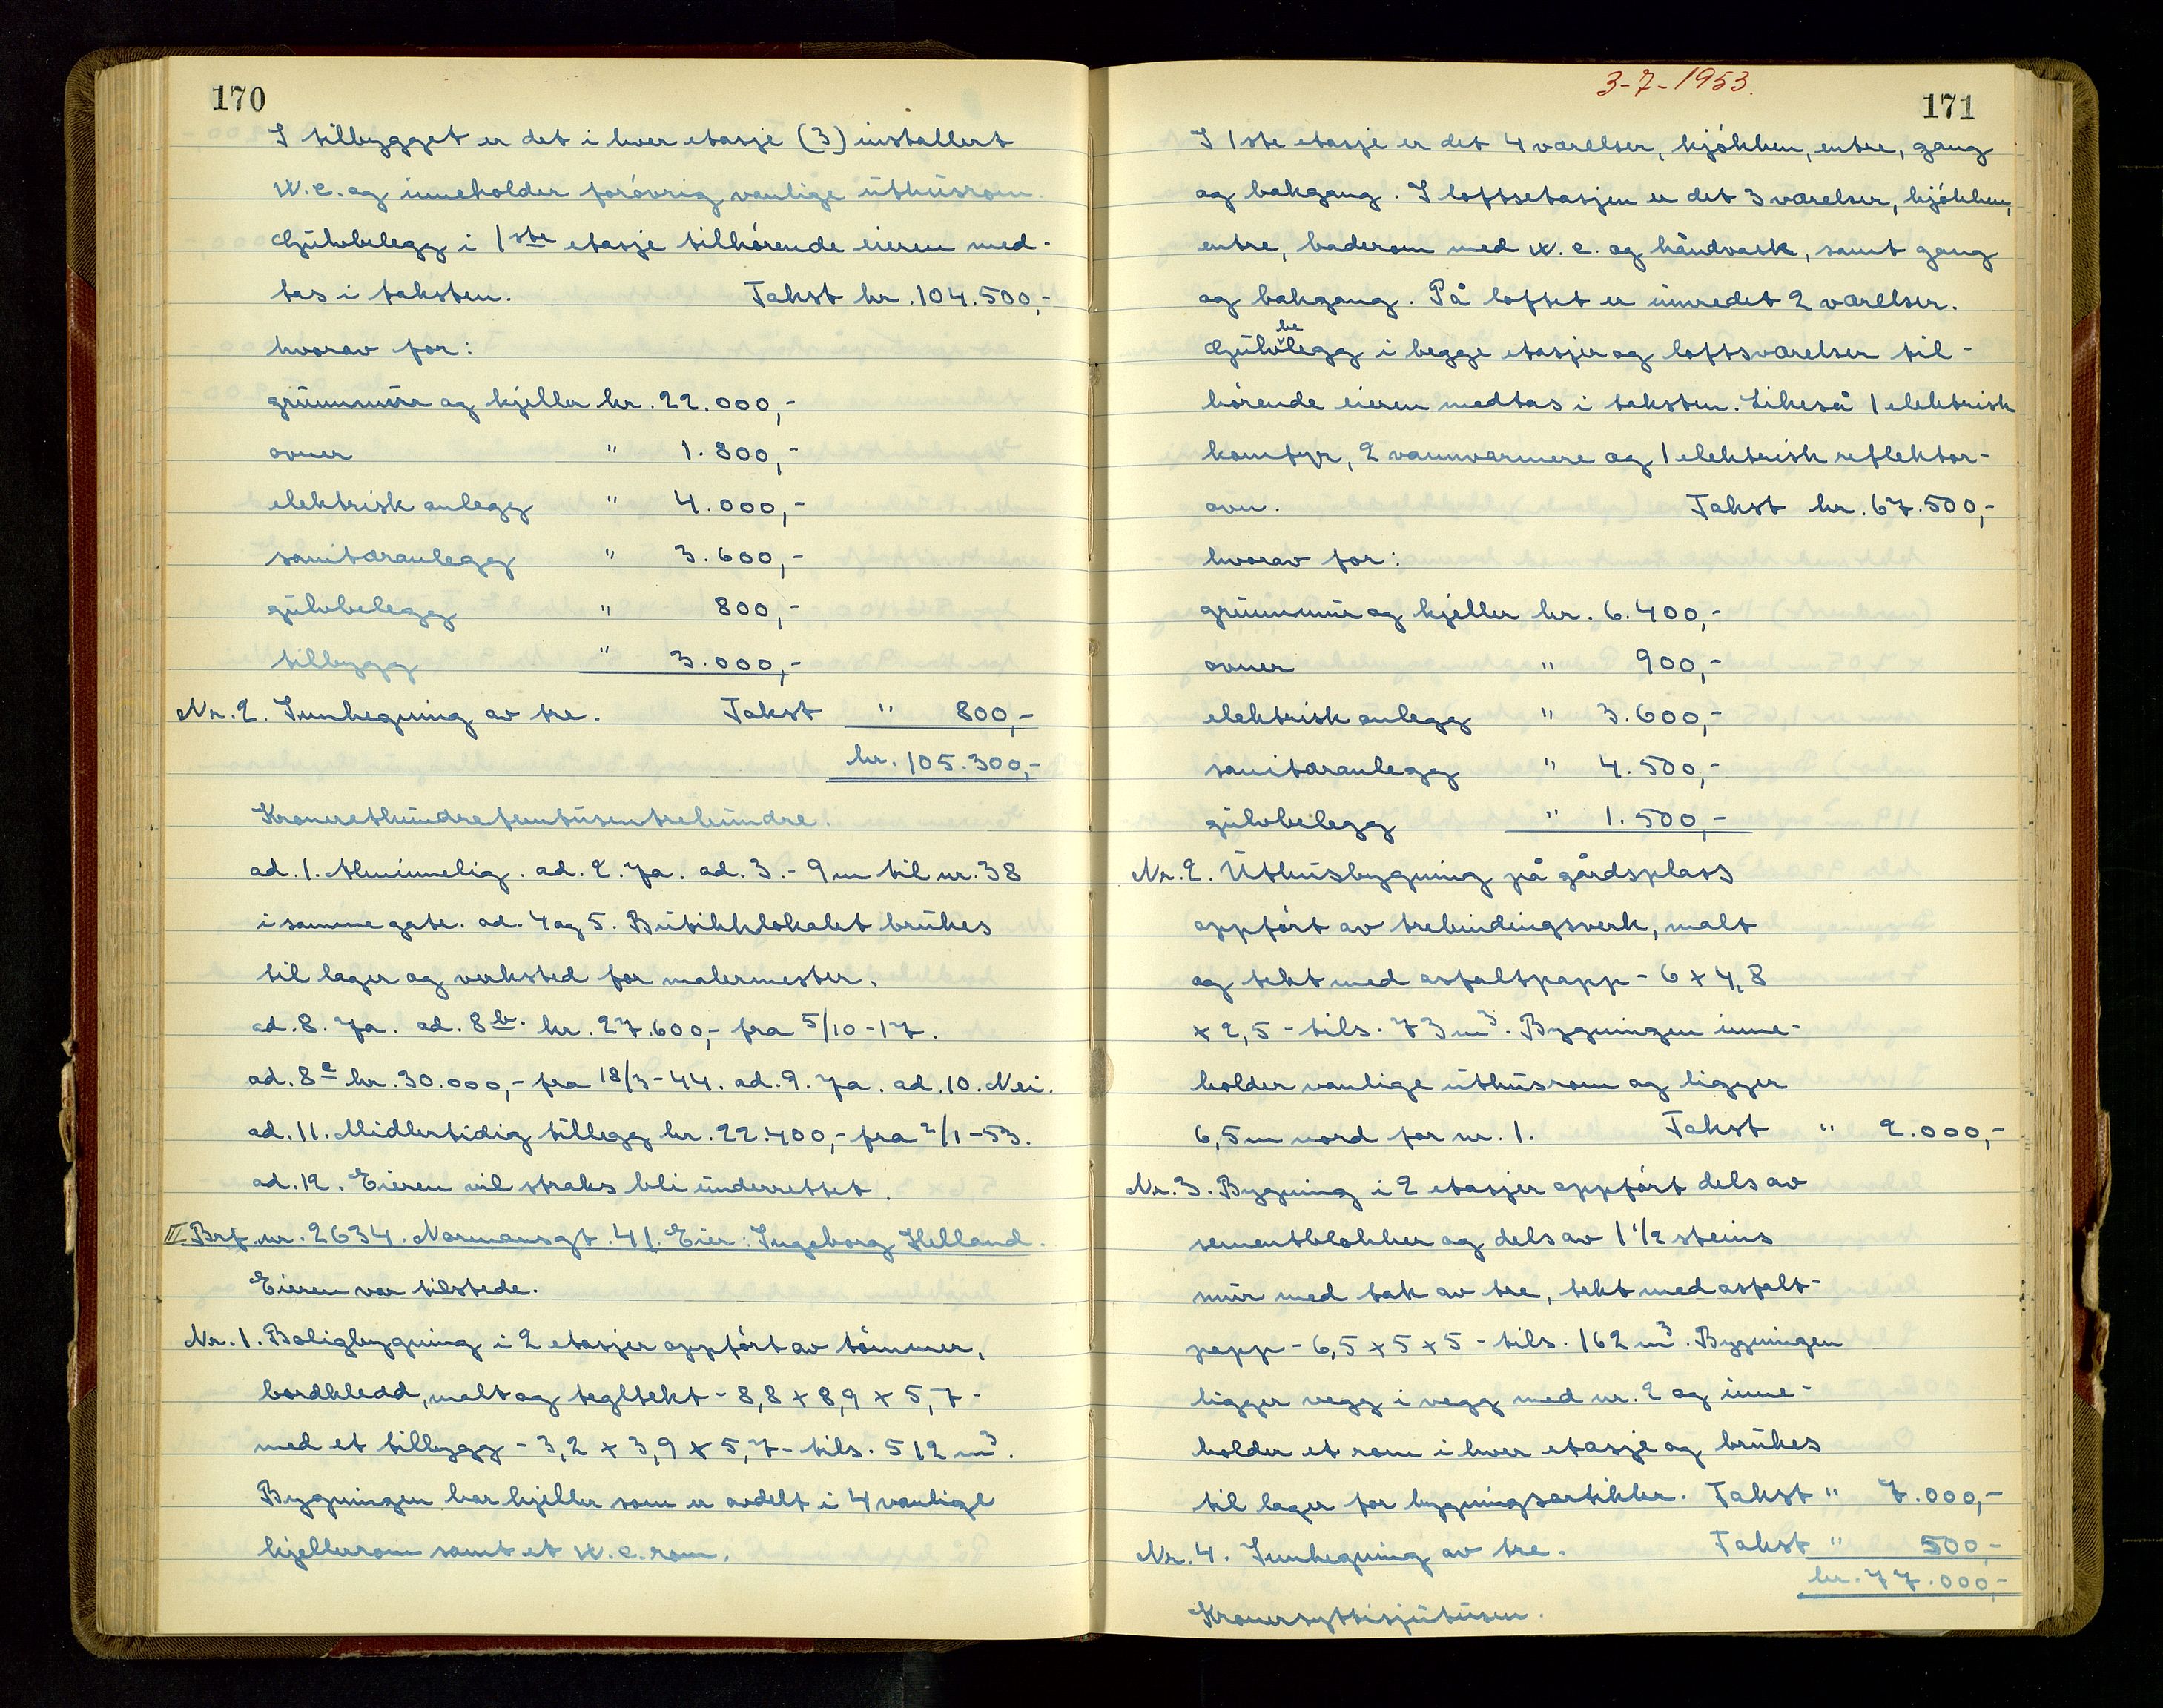 170
I tilbygget er det i hver etasje (3) installert
w.c. og inneholder forövrig vanlige uthusrom.
Gulvbelegg i 1ste etasje tilhörende eieren med-
tas i taksten. Takst kr. 104.500,-
hvorav for:
grunnmur og kjeller kr. 22.000,-
ovner " 1.800,-
elektrisk anlegg " 4.000,-
sanitæranlegg " 3.600,-
gulvbelegg " 800,-
tilbygg " 3.000,-
Nr. 2. Innhegning av tre. Takst " 800,-
kr. 105.300,-
Kroneretthundrefemtusentrehundre.
ad. 1. Alminnelig. ad. 2. Ja. ad. 3. - 9 m til nr. 38
i samme gate. ad. 4 og 5. Butikklokalet brukes
til lager og verksted for malermester.
ad. 8. Ja. ad. 8 b. kr. 27.600,- fra 5/10-17.
ad. 8 c kr. 30.000,- fra 18/3-44. ad. 9. Ja. ad. 10. Nei.
ad. 11. Midlertidig tillegg kr. 22.400,- fra 2/1-53.
ad. 12. Eieren vil straks bli underrettet.
II. Brf. nr. 2634. Normannsgt. 41. Eier: Ingeborg Helland.
Eieren var tilstede.
Nr. 1. Boligbygning i 2 etasjer oppfört av tömmer,
bordkledd, malt og tegltekt - 8,8 x 8,9 x 5,7 -
med et tilbygg - 3,2 x 3,9 x 5,7 - tils. 512 m³.
Bygningen har kjeller som er avdelt i 4 vanlige
kjellerrom samt et w.c. rom.
3-7-1953.
171
I 1ste etasje er det 4 værelser, kjökken, entre, gang
og bakgang. I loftsetasjen er det 3 værelser, kjökken,
entre, baderom med w.c. og håndvask, samt gang
og bakgang. På loftet er innredet 2 værelser.
Gulvbelegg i begge etasjer og loftsværelser til-
hörende eieren medtas i taksten. Likeså 1 elektrisk
komfyr, 2 vannvarmere og 1 elektrisk reflektor-
ovn. Takst kr. 67.500,-
hvorav for:
grunnmur og kjeller kr. 6.400,-
ovner " 900,-
elektrisk anlegg " 3.600,-
sanitæranlegg " 4.500,-
gulvbelegg " 1.500,-
Nr. 2. Uthusbygning på gårdsplass
oppfört av trebindingsverk, malt
og tekt med asfaltpapp - 6 x 4,8
x 2,5 - tils. 73 m³. Bygningen inne-
holder vanlige uthusrom og ligger
6,5 m nord for nr. 1. Takst " 2.000,-
Nr. 3. Bygning i 2 etasjer oppfört dels av
sementblokker og dels av 1 1/2 steins
mur med tak av tre, tekt med asfalt-
papp - 6,5 x 5 x 5 - tils. 162 m³. Bygningen
ligger vegg i vegg med nr. 2 og inne-
holder et rom i hver etasje og brukes
til lager for bygningsartikler. Takst " 7.000,-
Nr. 4. Innhegning av tre. Takst " 500,-
kr. 77.000,-
Kronersyttisjutusen.